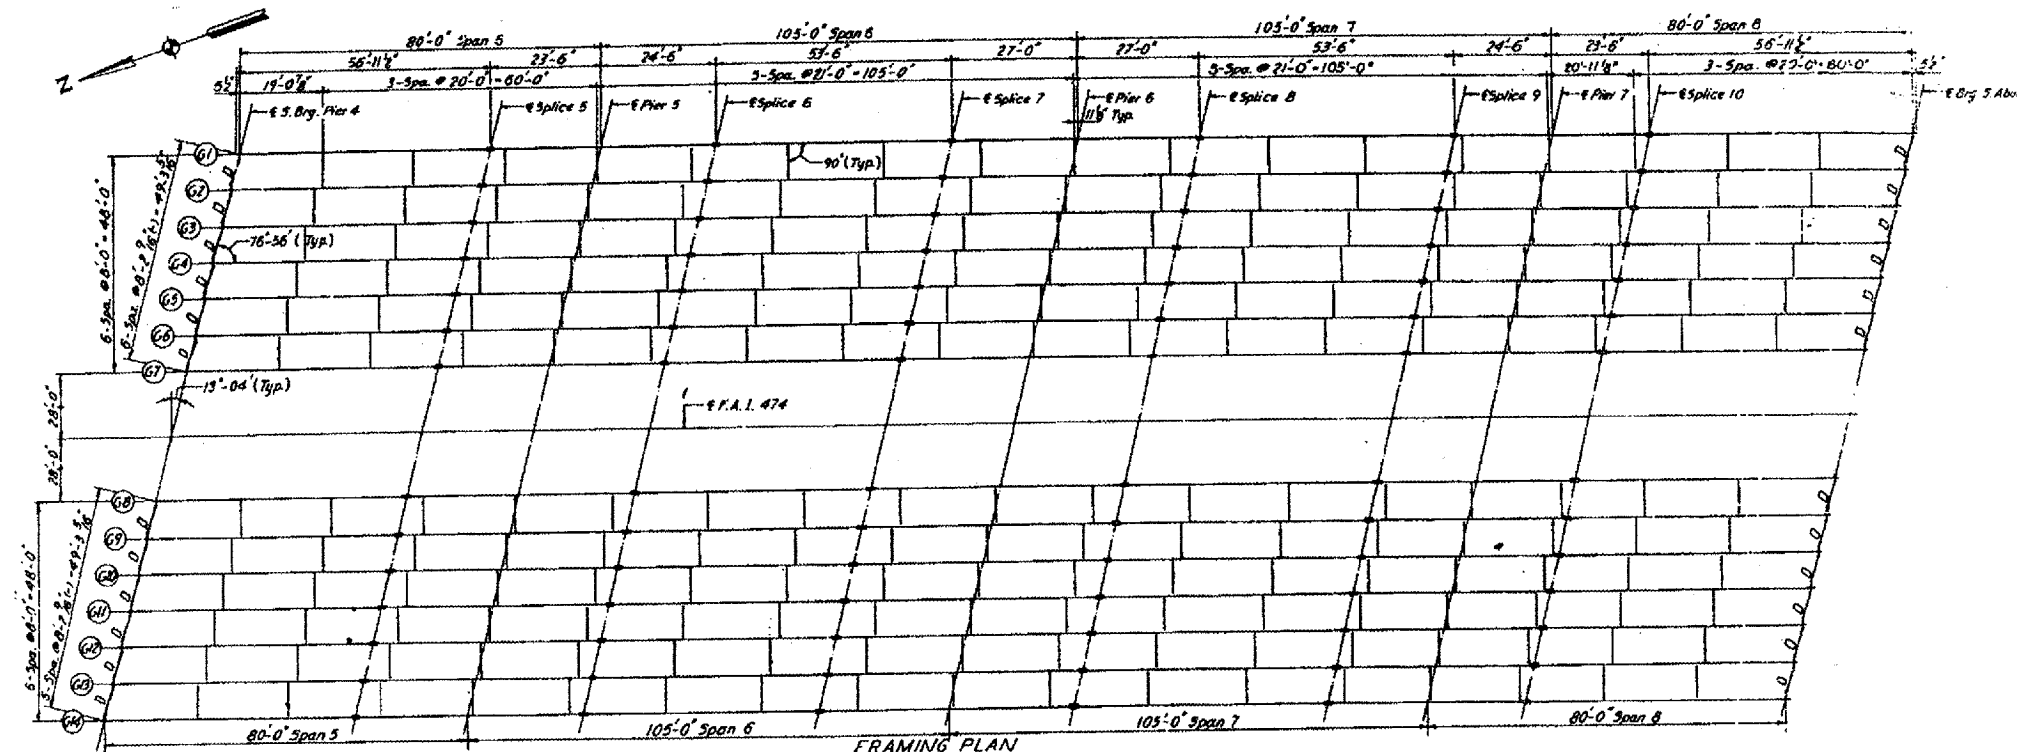 Z
80'-0" Span 5
105'-0" Span 6
105'-0" Span 7
80'-0" Span 8
56'-11½"
23'-6"
24'-6"
53'-6"
27'-0"
27'-0"
53'-6"
24'-6"
23'-6"
56'-11½"
5½"
19'-0⅞"
3-Spa. @ 20'-0" = 60'-0"
5-Spa. @ 21'-0" = 105'-0"
5-Spa. @ 21'-0" = 105'-0"
20'-11⅛"
3-Spa. @ 20'-0" = 60'-0"
5½"
℄ S. Brg. Pier 4
℄ Splice 5
℄ Pier 5
℄ Splice 6
℄ Splice 7
℄ Pier 6
℄ Splice 8
℄ Splice 9
℄ Pier 7
℄ Splice 10
℄ Brg S. Abu
Typ.
90° (Typ.)
G1
G2
G3
G4
G5
G6
G7
6-Spa. @ 8'-0" = 48'-0"
76°-56' (Typ.)
13°-04' (Typ.)
℄ F.A.I. 474
28'-0"
28'-0"
G8
G9
G10
G11
G12
G13
G14
6-Spa. @ 8'-0" = 48'-0"
80'-0" Span 5
105'-0" Span 6
105'-0" Span 7
80'-0" Span 8
FRAMING PLAN